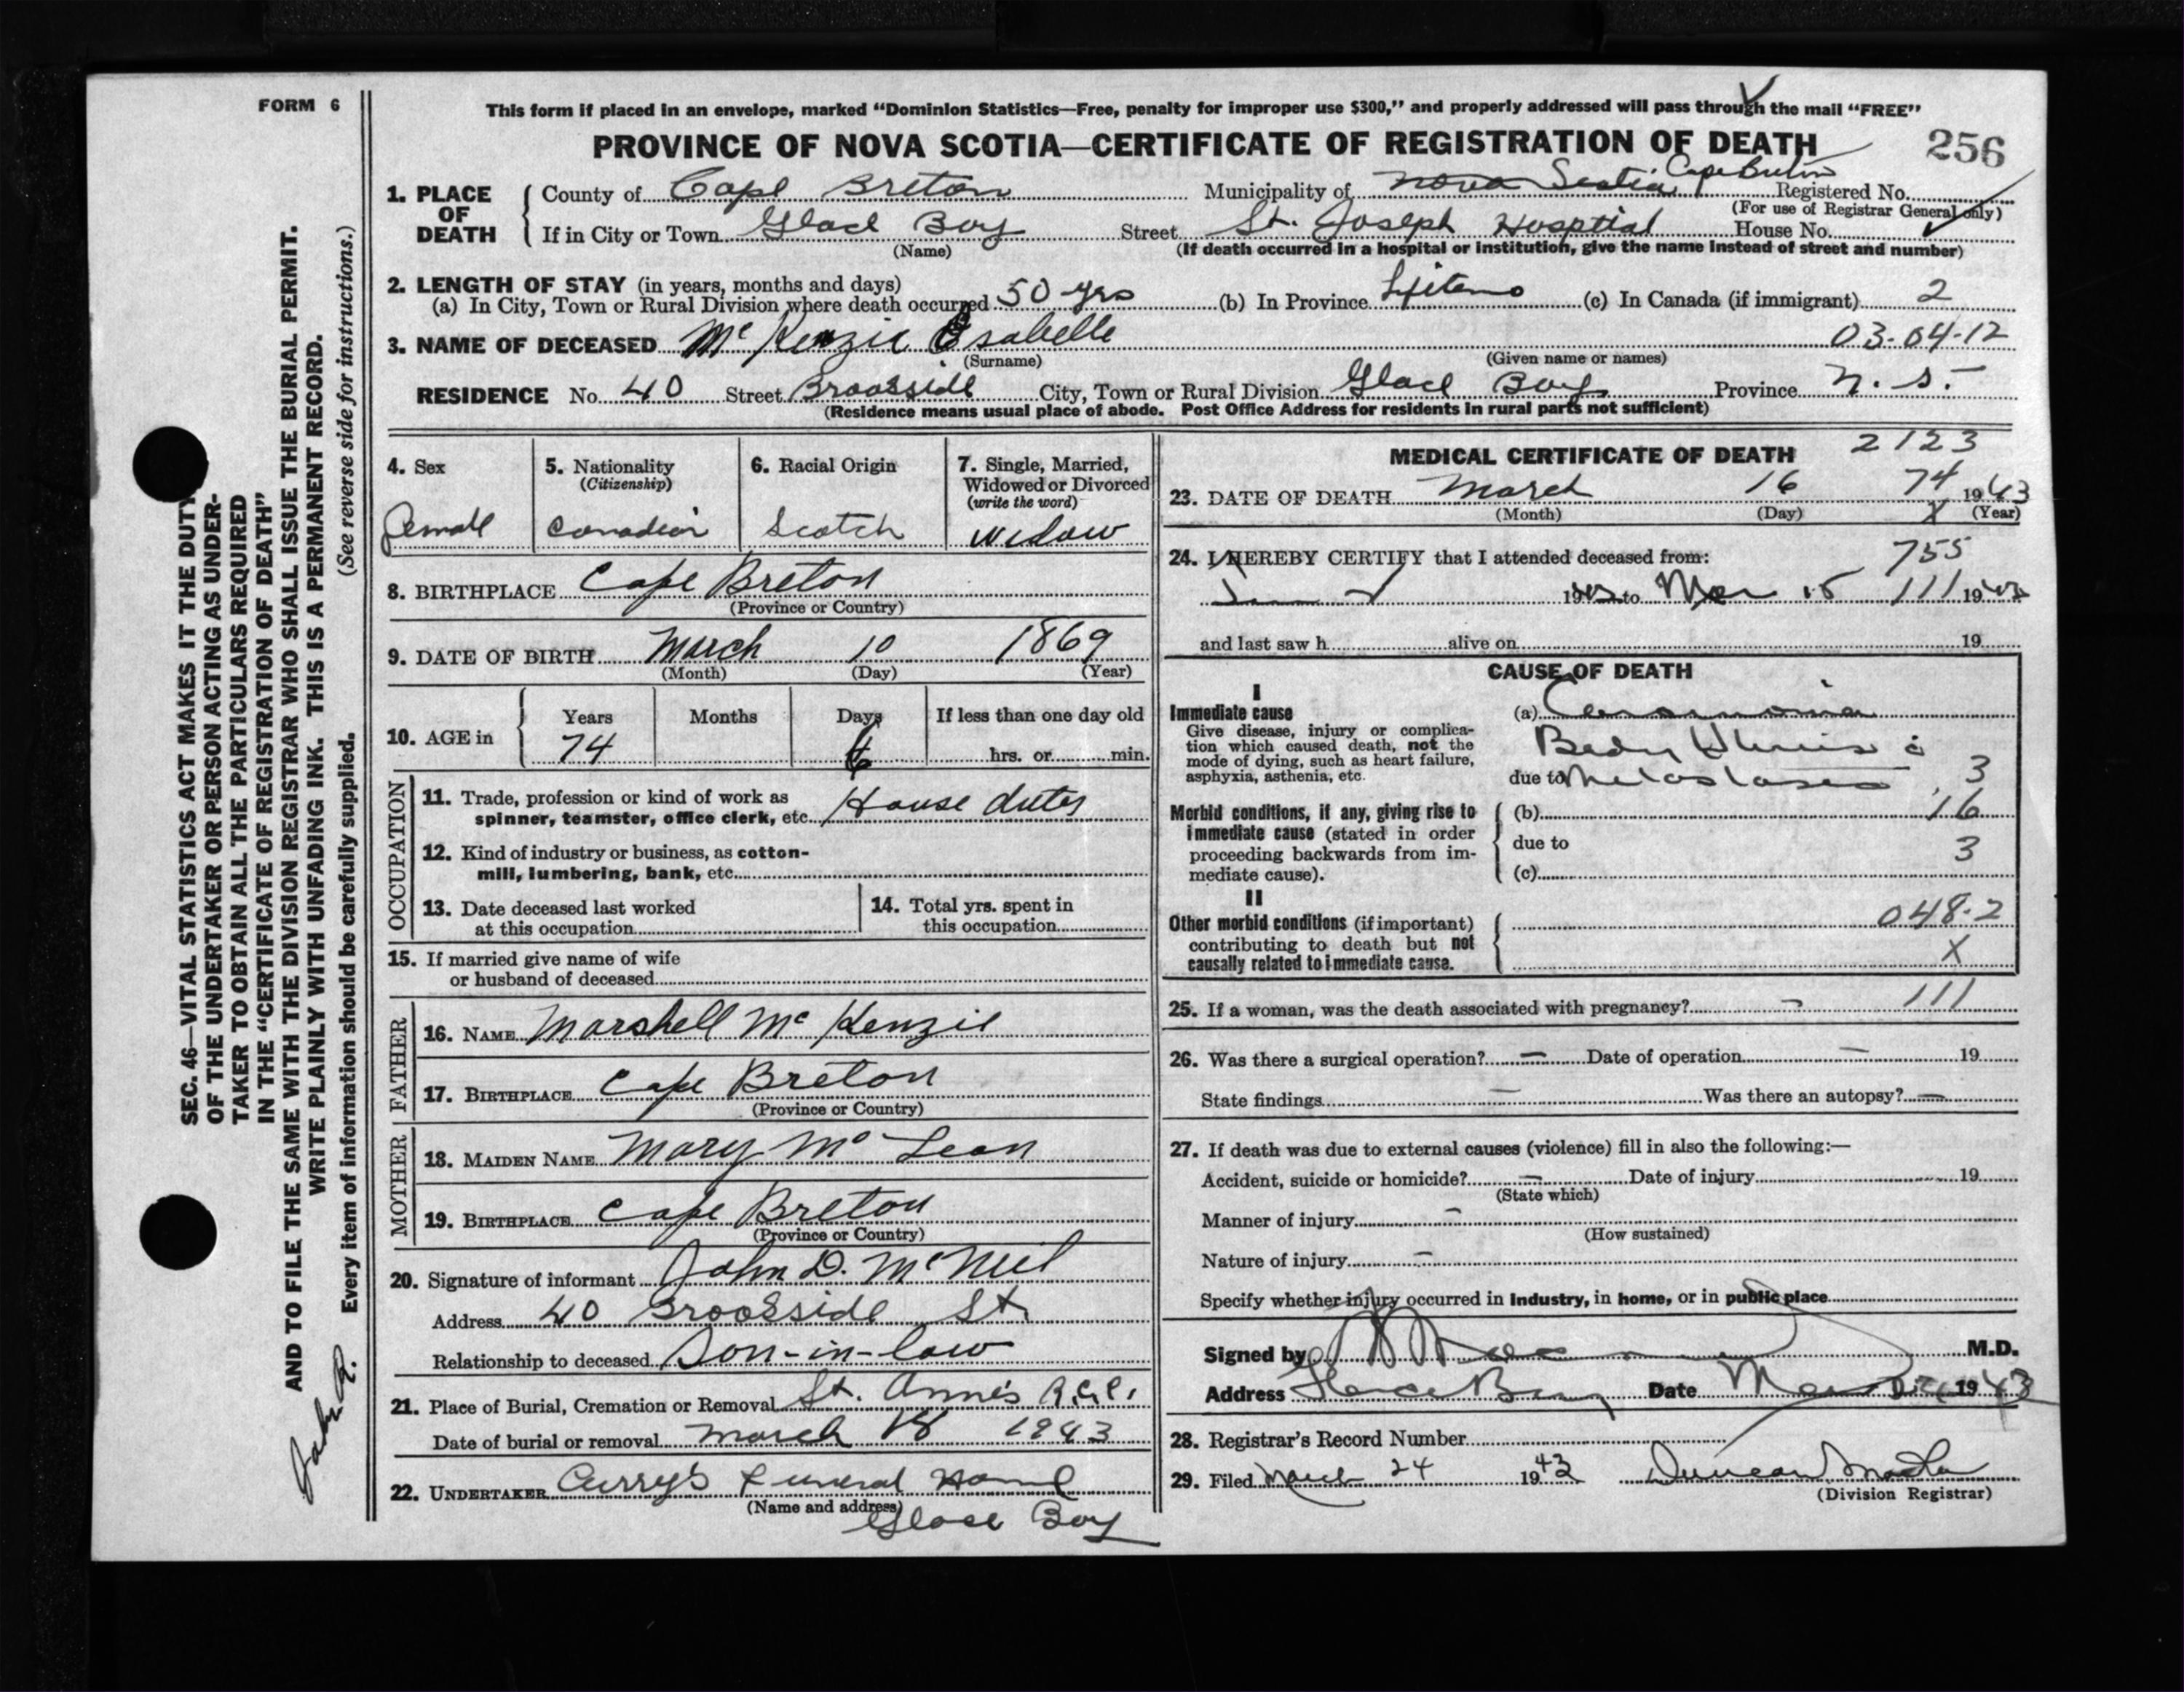 FORM 6
This form if placed in an envelope, marked “Dominion Statistics—Free, penalty for improper use $300,” and properly addressed will pass through the mail “FREE”
PROVINCE OF NOVA SCOTIA—CERTIFICATE OF REGISTRATION OF DEATH 256
1. PLACE OF DEATH
County of Cape Breton Municipality of Nova Scotia Cape Breton Registered No.
(For use of Registrar General only)
If in City or Town Glace Bay Street St. Joseph Hosptial House No.
(Name) (If death occurred in a hospital or institution, give the name instead of street and number)
2. LENGTH OF STAY (in years, months and days)
(a) In City, Town or Rural Division where death occurred 50 yrs (b) In Province Lifetime (c) In Canada (if immigrant) 2
3. NAME OF DECEASED McKenzie Esabelle 03-04-12
(Surname) (Given name or names)
RESIDENCE No. 40 Street Brookside City, Town or Rural Division Glace Bay Province N. S.
(Residence means usual place of abode. Post Office Address for residents in rural parts not sufficient)
4. Sex
Female
5. Nationality
(Citizenship)
Canadian
6. Racial Origin
Scotch
7. Single, Married,
Widowed or Divorced
(write the word)
Widow
8. BIRTHPLACE Cape Breton
(Province or Country)
9. DATE OF BIRTH March 10 1869
(Month) (Day) (Year)
10. AGE in
Years Months Days If less than one day old
74 6 hrs. or min.
OCCUPATION
11. Trade, profession or kind of work as
spinner, teamster, office clerk, etc. House duties
12. Kind of industry or business, as cotton-
mill, lumbering, bank, etc.
13. Date deceased last worked
at this occupation
14. Total yrs. spent in
this occupation
15. If married give name of wife
or husband of deceased
FATHER
16. NAME Marshell McKenzie
17. BIRTHPLACE Cape Breton
(Province or Country)
MOTHER
18. MAIDEN NAME Mary McLean
19. BIRTHPLACE Cape Breton
(Province or Country)
20. Signature of informant John D. McNeil
Address 40 Brookside St.
Relationship to deceased Son-in-law
21. Place of Burial, Cremation or Removal St. Anne's
Date of burial or removal March 18 1943
22. UNDERTAKER Curry's Funeral Home
(Name and address)
Glace Bay
MEDICAL CERTIFICATE OF DEATH 2123
23. DATE OF DEATH March 16 74 1943
(Month) (Day) X (Year)
24. I HEREBY CERTIFY that I attended deceased from: 755
19 to Mar 15 111 19
and last saw h alive on 19
CAUSE OF DEATH
I
Immediate cause
Give disease, injury or complica-
tion which caused death, not the
mode of dying, such as heart failure,
asphyxia, asthenia, etc.
(a) Carcinoma
due to metastases 3
Morbid conditions, if any, giving rise to
immediate cause (stated in order
proceeding backwards from im-
mediate cause).
(b) 16
due to 3
(c)
II
Other morbid conditions (if important)
contributing to death but not
causally related to immediate cause.
048-2
X
25. If a woman, was the death associated with pregnancy? – 111
26. Was there a surgical operation? – Date of operation – 19
State findings – Was there an autopsy? –
27. If death was due to external causes (violence) fill in also the following:—
Accident, suicide or homicide? – Date of injury 19
(State which)
Manner of injury –
(How sustained)
Nature of injury –
Specify whether injury occurred in industry, in home, or in public place
Signed by M.D.
Address Glace Bay Date 1943
28. Registrar's Record Number
29. Filed March 24 1943 Duncan
(Division Registrar)
SEC. 46—VITAL STATISTICS ACT MAKES IT THE DUTY
OF THE UNDERTAKER OR PERSON ACTING AS UNDER-
TAKER TO OBTAIN ALL THE PARTICULARS REQUIRED
IN THE “CERTIFICATE OF REGISTRATION OF DEATH”
AND TO FILE THE SAME WITH THE DIVISION REGISTRAR WHO SHALL ISSUE THE BURIAL PERMIT.
WRITE PLAINLY WITH UNFADING INK. THIS IS A PERMANENT RECORD.
Every item of information should be carefully supplied. (See reverse side for instructions.)